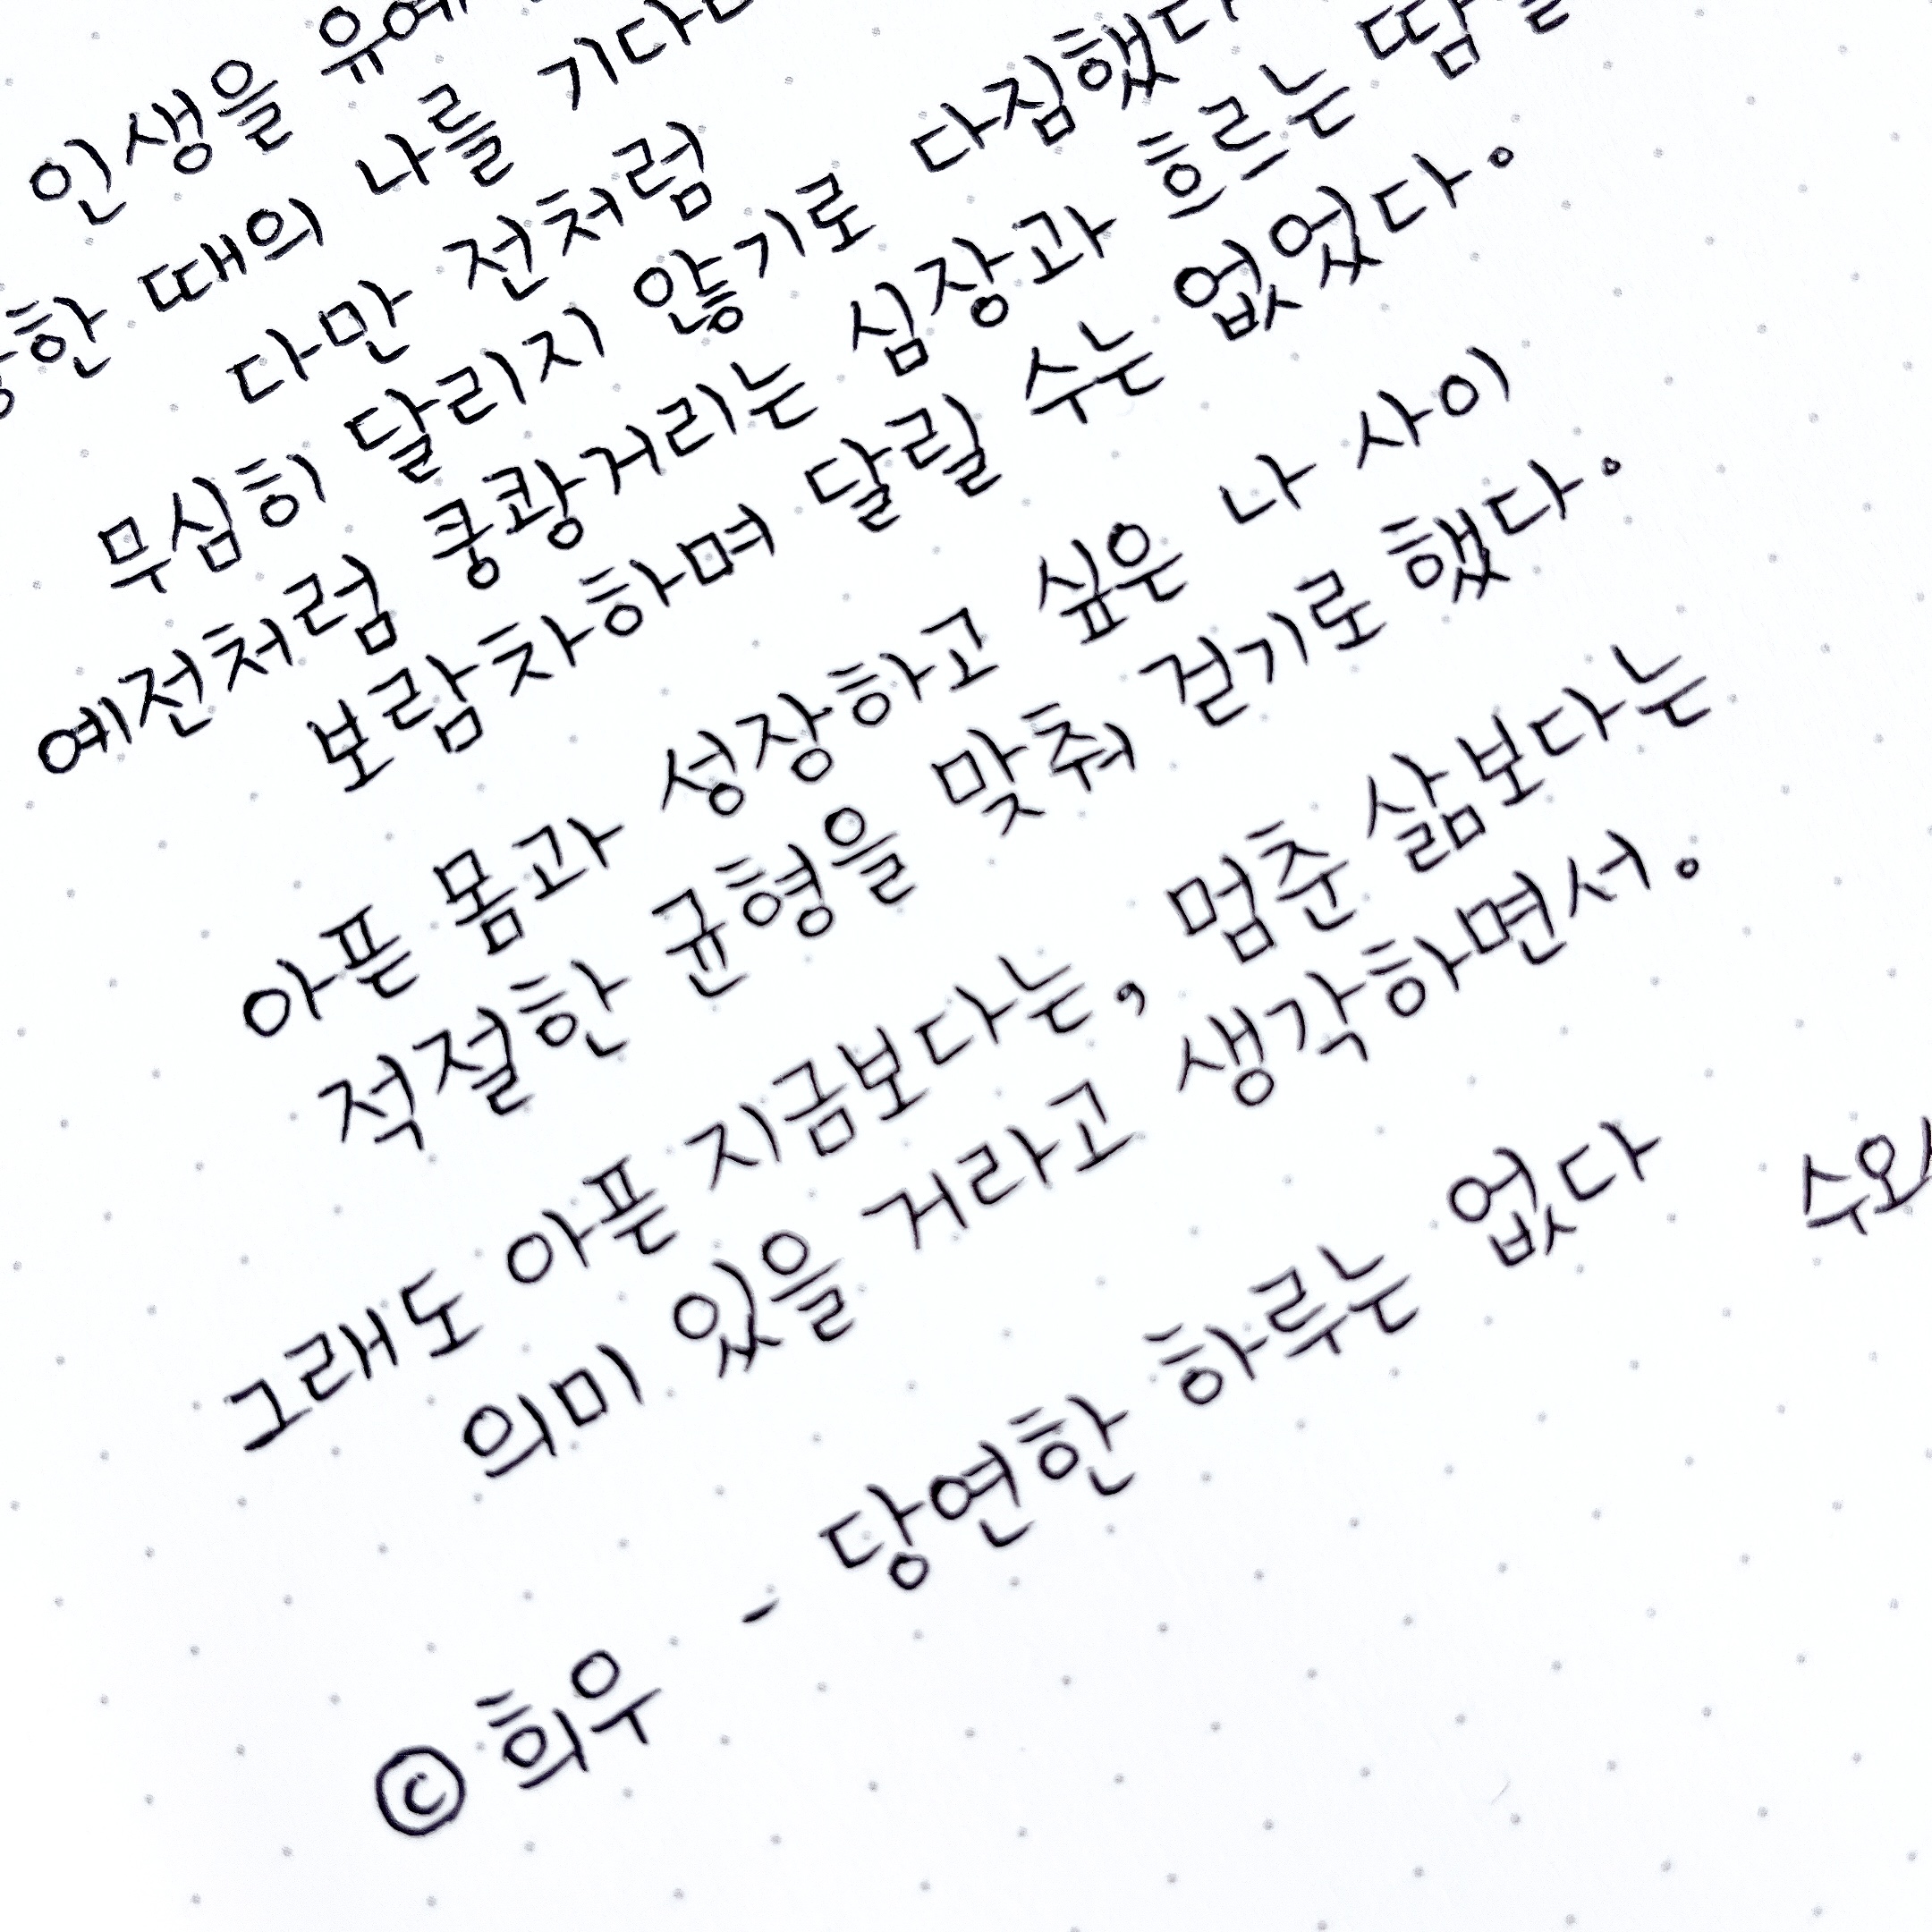 인생을
한 때의 나를
다만 전처럼
무심히 달리지 않기로 다짐했다
예전처럼 쿵쾅거리는 심장과 흐르는 땀을
보람차하며 달릴 수는 없었다.
아픈 몸과 성장하고 싶은 나 사이
적절한 균형을 맞춰 걷기로 했다.
그래도 아픈 지금보다는, 멈춘 삶보다는
의미 있을 거라고 생각하면서.
ⓒ 희우 - 당연한 하루는 없다